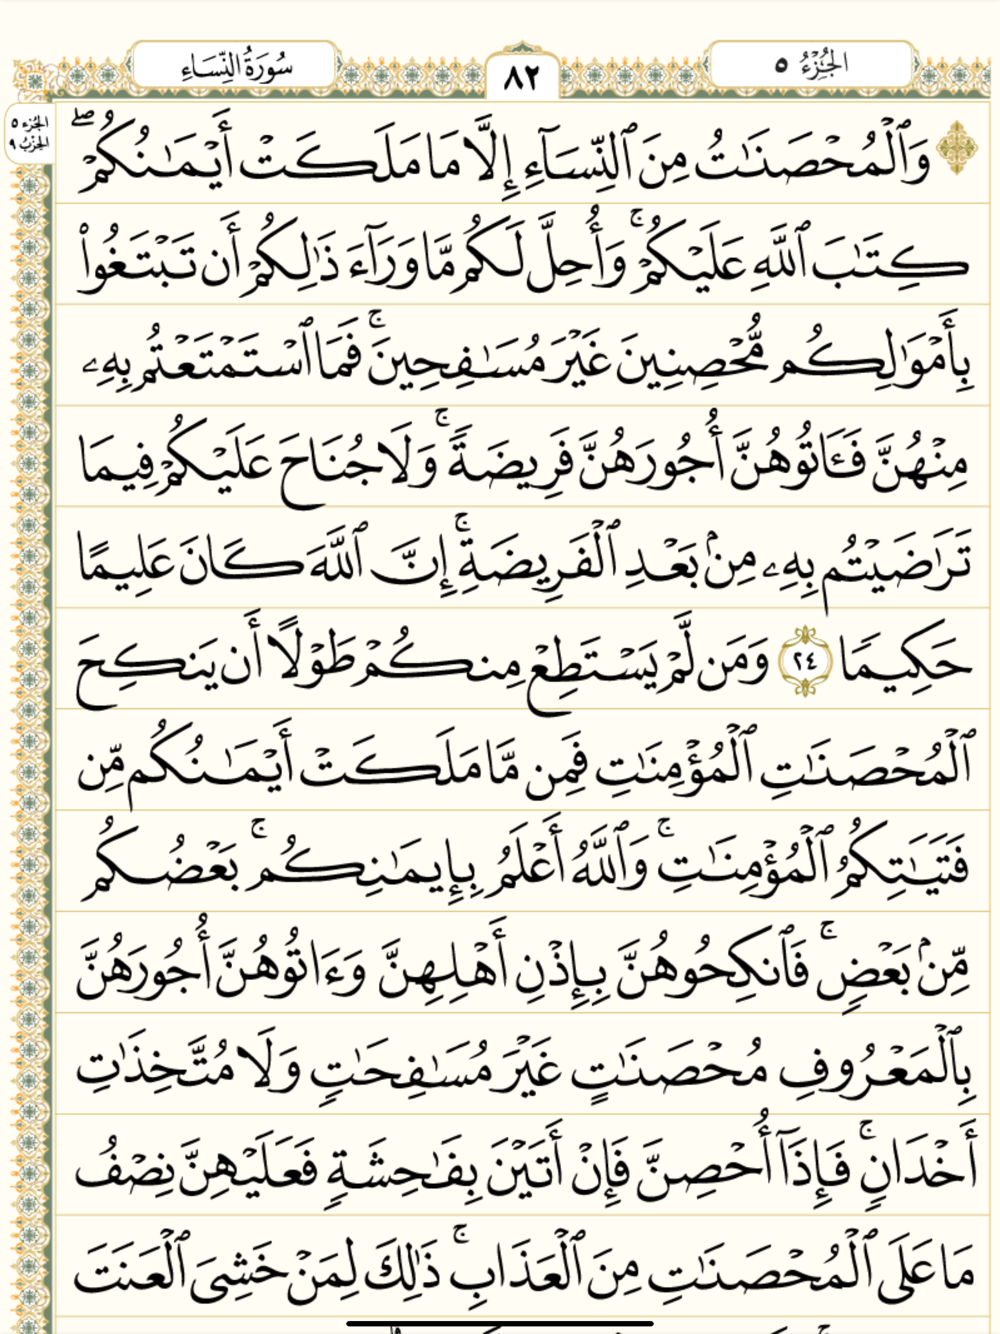 الجُزْءُ ٥
٨٢
سُورَةُ النِّسَاءِ
الجزء ٥
الحزب ٩
۞ وَٱلْمُحْصَنَٰتُ مِنَ ٱلنِّسَآءِ إِلَّا مَا مَلَكَتْ أَيْمَٰنُكُمْ ۖ
كِتَٰبَ ٱللَّهِ عَلَيْكُمْ ۚ وَأُحِلَّ لَكُم مَّا وَرَآءَ ذَٰلِكُمْ أَن تَبْتَغُوا۟
بِأَمْوَٰلِكُم مُّحْصِنِينَ غَيْرَ مُسَٰفِحِينَ ۚ فَمَا ٱسْتَمْتَعْتُم بِهِۦ
مِنْهُنَّ فَـَٔاتُوهُنَّ أُجُورَهُنَّ فَرِيضَةً ۚ وَلَا جُنَاحَ عَلَيْكُمْ فِيمَا
تَرَٰضَيْتُم بِهِۦ مِنۢ بَعْدِ ٱلْفَرِيضَةِ ۚ إِنَّ ٱللَّهَ كَانَ عَلِيمًا
حَكِيمًا ٢٤ وَمَن لَّمْ يَسْتَطِعْ مِنكُمْ طَوْلًا أَن يَنكِحَ
ٱلْمُحْصَنَٰتِ ٱلْمُؤْمِنَٰتِ فَمِن مَّا مَلَكَتْ أَيْمَٰنُكُم مِّن
فَتَيَٰتِكُمُ ٱلْمُؤْمِنَٰتِ ۚ وَٱللَّهُ أَعْلَمُ بِإِيمَٰنِكُم ۚ بَعْضُكُم
مِّنۢ بَعْضٍ ۚ فَٱنكِحُوهُنَّ بِإِذْنِ أَهْلِهِنَّ وَءَاتُوهُنَّ أُجُورَهُنَّ
بِٱلْمَعْرُوفِ مُحْصَنَٰتٍ غَيْرَ مُسَٰفِحَٰتٍ وَلَا مُتَّخِذَٰتِ
أَخْدَانٍ ۚ فَإِذَآ أُحْصِنَّ فَإِنْ أَتَيْنَ بِفَٰحِشَةٍ فَعَلَيْهِنَّ نِصْفُ
مَا عَلَى ٱلْمُحْصَنَٰتِ مِنَ ٱلْعَذَابِ ۚ ذَٰلِكَ لِمَنْ خَشِىَ ٱلْعَنَتَ